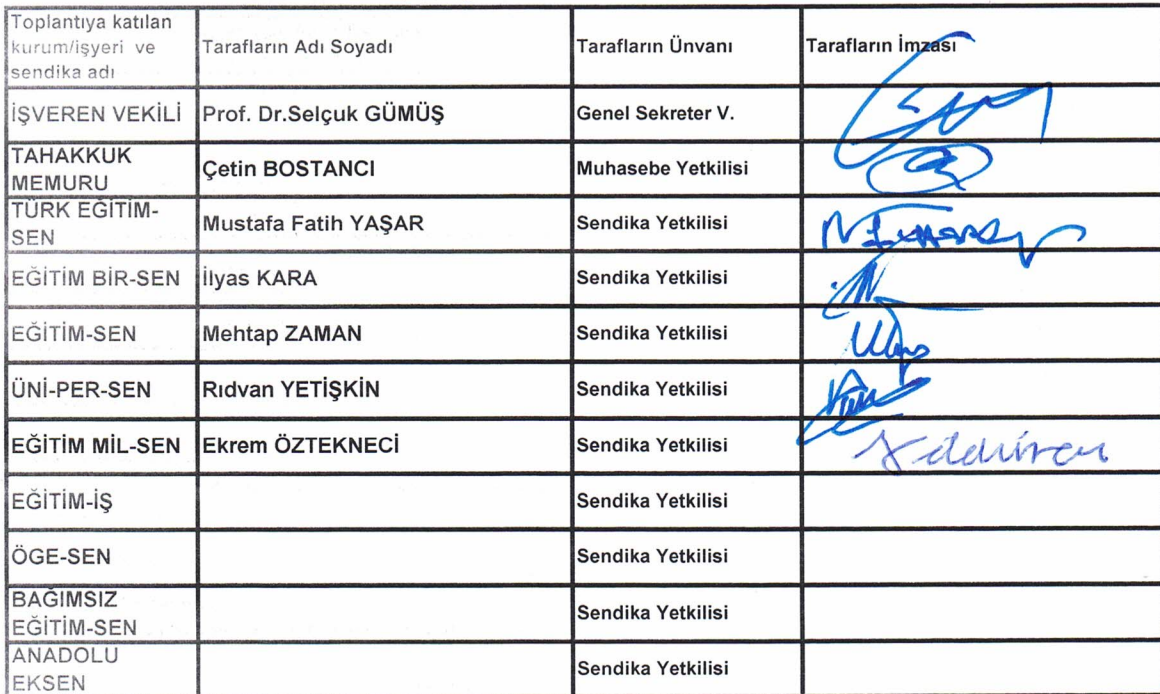 Toplantıya katılan
kurum/işyeri ve
sendika adı
Tarafların Adı Soyadı
Tarafların Ünvanı
Tarafların İmzası
İŞVEREN VEKİLİ
Prof. Dr.Selçuk GÜMÜŞ
Genel Sekreter V.
TAHAKKUK
MEMURU
Çetin BOSTANCI
Muhasebe Yetkilisi
TÜRK EĞİTİM-
SEN
Mustafa Fatih YAŞAR
Sendika Yetkilisi
EĞİTİM BİR-SEN
İlyas KARA
Sendika Yetkilisi
EĞİTİM-SEN
Mehtap ZAMAN
Sendika Yetkilisi
ÜNİ-PER-SEN
Rıdvan YETİŞKİN
Sendika Yetkilisi
EĞİTİM MİL-SEN
Ekrem ÖZTEKNECİ
Sendika Yetkilisi
EĞİTİM-İŞ
Sendika Yetkilisi
ÖGE-SEN
Sendika Yetkilisi
BAĞIMSIZ
EĞİTİM-SEN
Sendika Yetkilisi
ANADOLU
EKSEN
Sendika Yetkilisi